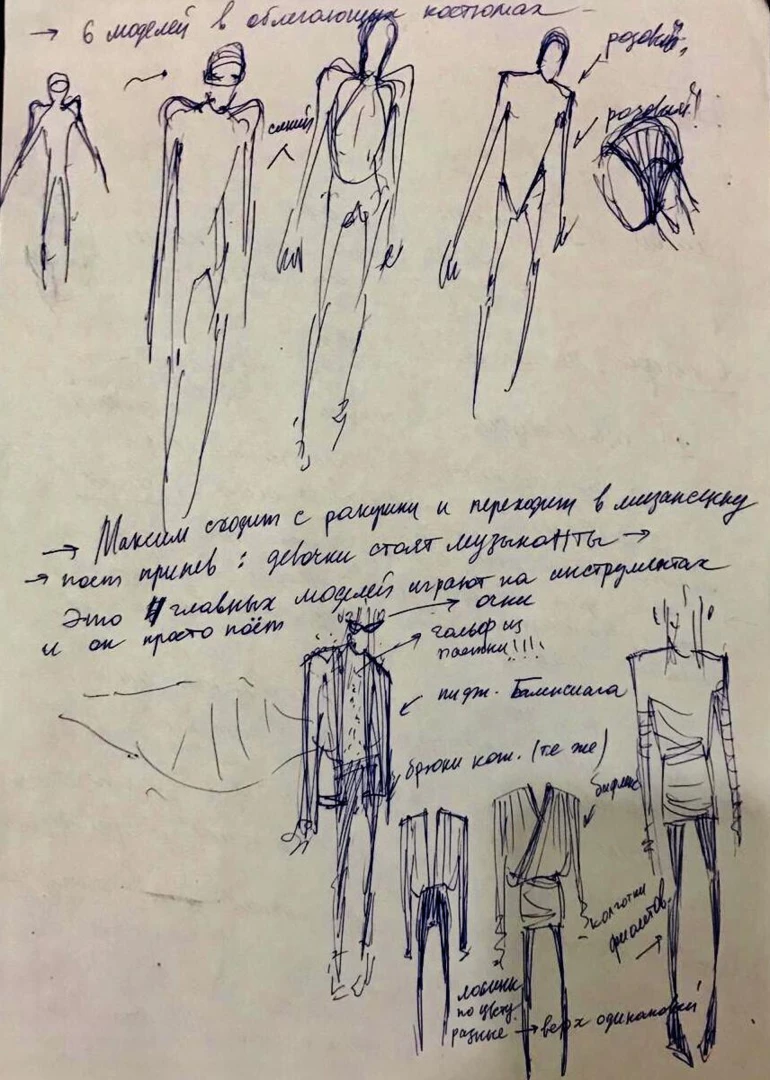 → 6 моделей в облегающих костюмах –
розовый,
розовый!
синий
→ Максим сходит с ракушки и переходит в мизансцену
→ поёт припев : девочки стоят музыканты →
Это 4 главных моделей играют на инструментах
и он просто поёт
очки
гольф из
паетки!!!!
пидж. Баленсиага
брюки кож. (те же)
бифлекс
колготки
фиолетов.
лосины
по цвету
разные → верх одинаковый